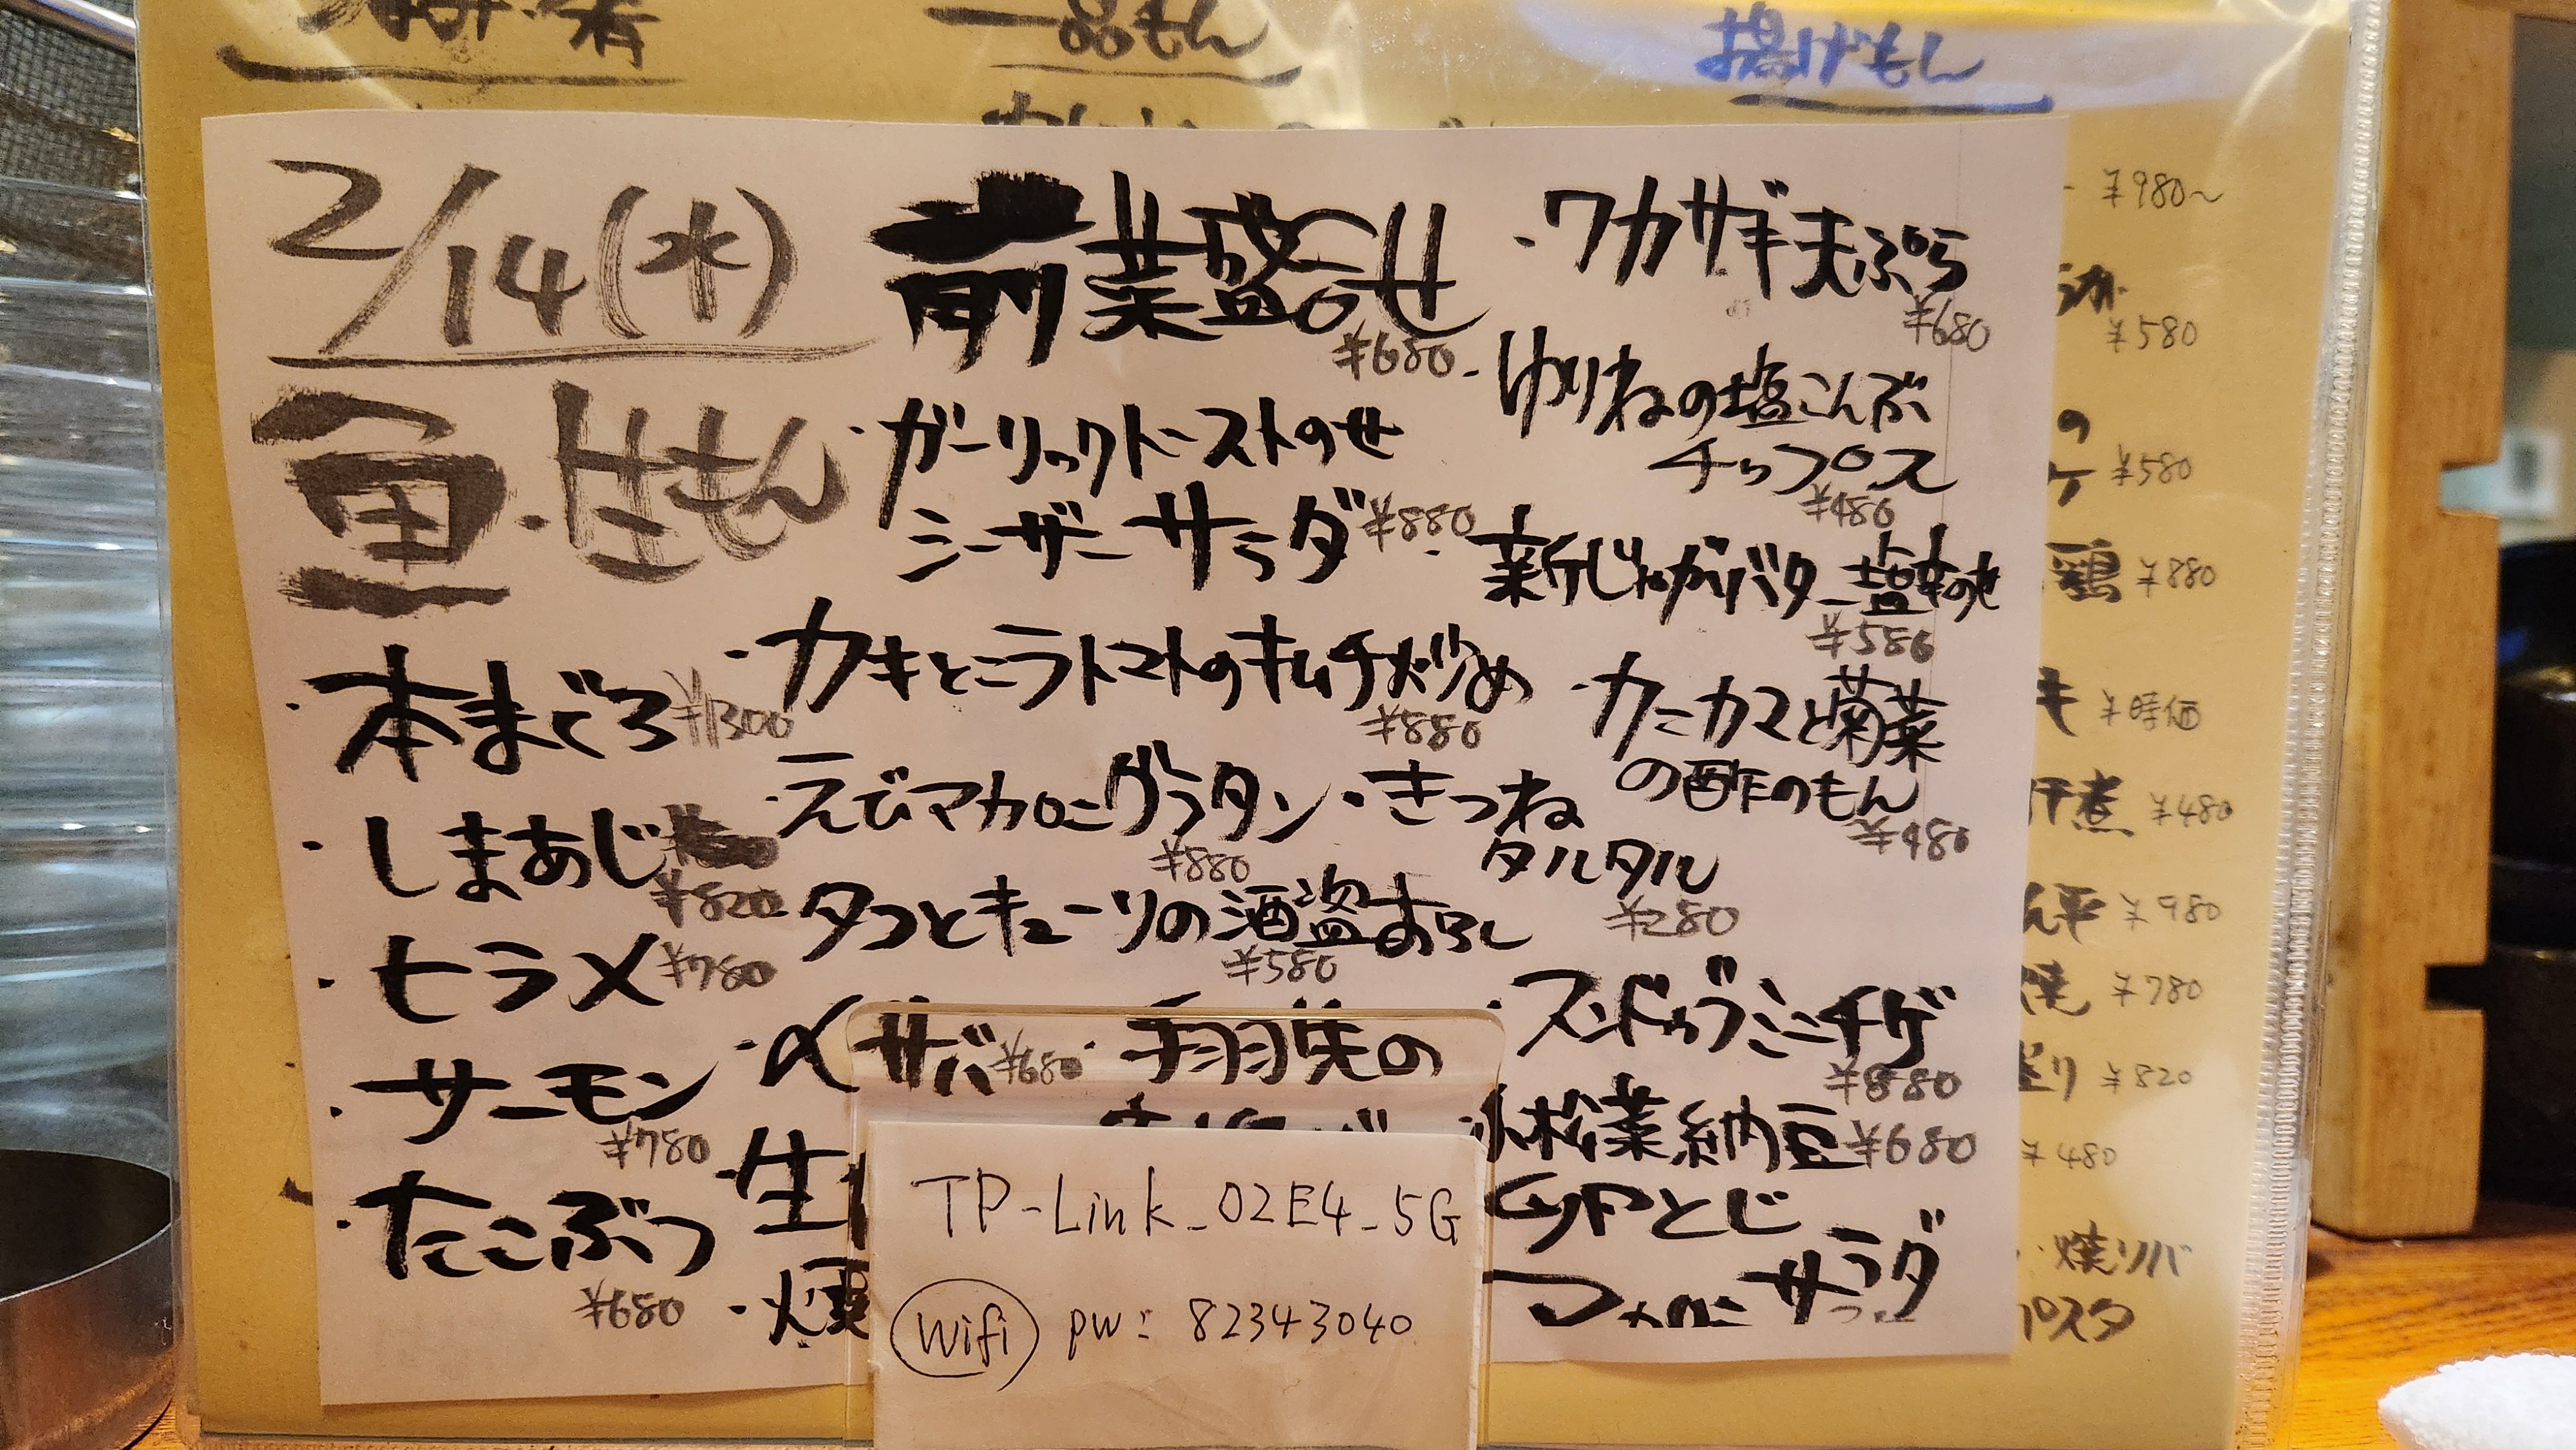 一品もん
揚げもん
2/14(水)
魚・生もん
・本まぐろ ¥1300
・しまあじ
¥820
・ヒラメ ¥780
・サーモン
¥780
・たこぶつ
¥680
前菜盛〇せ
¥680
・ガーリックトーストのせ
シーザーサラダ ¥880
・カキとニラトマトのキムチ炒め
¥880
・えびマカロニグラタン
¥880
・タコとキューリの酒盗おろし
¥580
・〆サバ ¥680
・手羽先の
・生
・燻
・ワカサギ天ぷら
¥680
・ゆりねの塩こんぶ
チップス
¥480
・新じゃがバター塩辛のせ
¥580
・カニカマと菊菜
の酢のもん
¥480
・きつね
タルタル
¥280
・スンドゥブミニチゲ
¥880
小松菜納豆 ¥680
とじ
サラダ
¥980〜
¥580
の
¥580
鶏 ¥880
き ¥時価
肝煮 ¥480
平 ¥980
焼 ¥780
¥820
¥480
・焼リバ
パスタ
TP-Link_02E4_5G
Wifi pw: 82343040